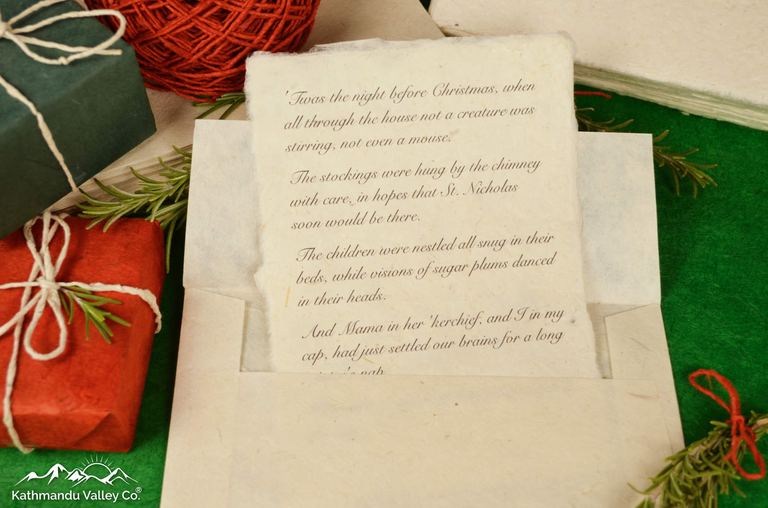 'Twas the night before Christmas, when
all through the house not a creature was
stirring, not even a mouse.
The stockings were hung by the chimney
with care, in hopes that St. Nicholas
soon would be there.
The children were nestled all snug in their
beds, while visions of sugar plums danced
in their heads.
And Mama in her 'kerchief, and I in my
cap, had just settled our brains for a long
nap
Kathmandu Valley Co.®